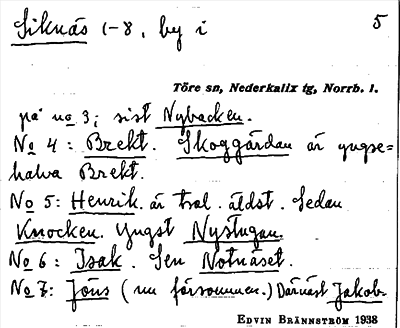 Siknäs 1-8, by i 5
Töre sn, Nederkalix tg, Norrb. l.
på no 3; sist Nybacken.
No 4: Brekt. Skoggårdan är yngse-
halva Brekt.
No 5: Henrik. är trol. äldst. Sedan
Knocken. Yngst Nystugan.
No 6: Isak. Sen Notnäset.
No 7: Jöns (nu försommen.) Därnäst Jakob.
EDVIN BRÄNNSTRÖM 1938